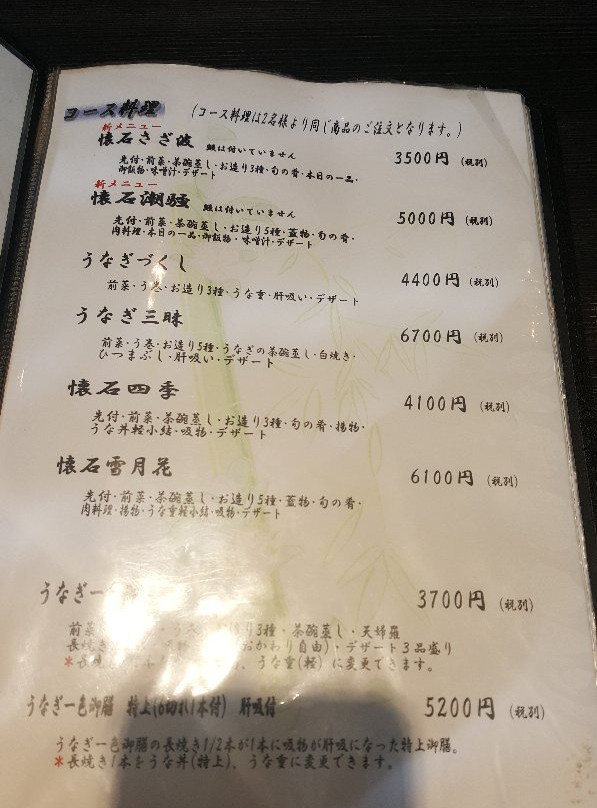 コース料理 (コース料理は2名様より同じ商品のご注文となります。)
新メニュー
懐石さざ波 鰻は付いていません 3500円 (税別)
先付・前菜・茶碗蒸し・お造り3種・旬の肴・本日の一品・
御飯物・味噌汁・デザート
新メニュー
懐石潮騒 鰻は付いていません 5000円 (税別)
先付・前菜・茶碗蒸し・お造り5種・蓋物・旬の肴・
肉料理・本日の一品・御飯物・味噌汁・デザート
うなぎづくし 4400円 (税別)
前菜・う巻・お造り3種・うな重・肝吸い・デザート
うなぎ三昧 6700円 (税別)
前菜・う巻・お造り5種・うなぎの茶碗蒸し・白焼き・
ひつまぶし・肝吸い・デザート
懐石四季 4100円 (税別)
先付・前菜・茶碗蒸し・お造り3種・旬の肴・揚物・
うな丼軽小結・吸物・デザート
懐石雪月花 6100円 (税別)
先付・前菜・茶碗蒸し・お造り5種・蓋物・旬の肴・
肉料理・揚物・うな重軽小結・吸物・デザート
うなぎ一 3700円 (税別)
前菜 う巻・お造り3種・茶碗蒸し・天婦羅
長焼き おかわり自由)・デザート3品盛り
*長焼き 、うな重(軽)に変更できます。
うなぎ一色御膳 特上(6切れ1本付) 肝吸付 5200円 (税別)
うなぎ一色御膳の長焼き1/2本が1本に吸物が肝吸になった特上御膳。
*長焼き1本をうな丼(特上)、うな重に変更できます。